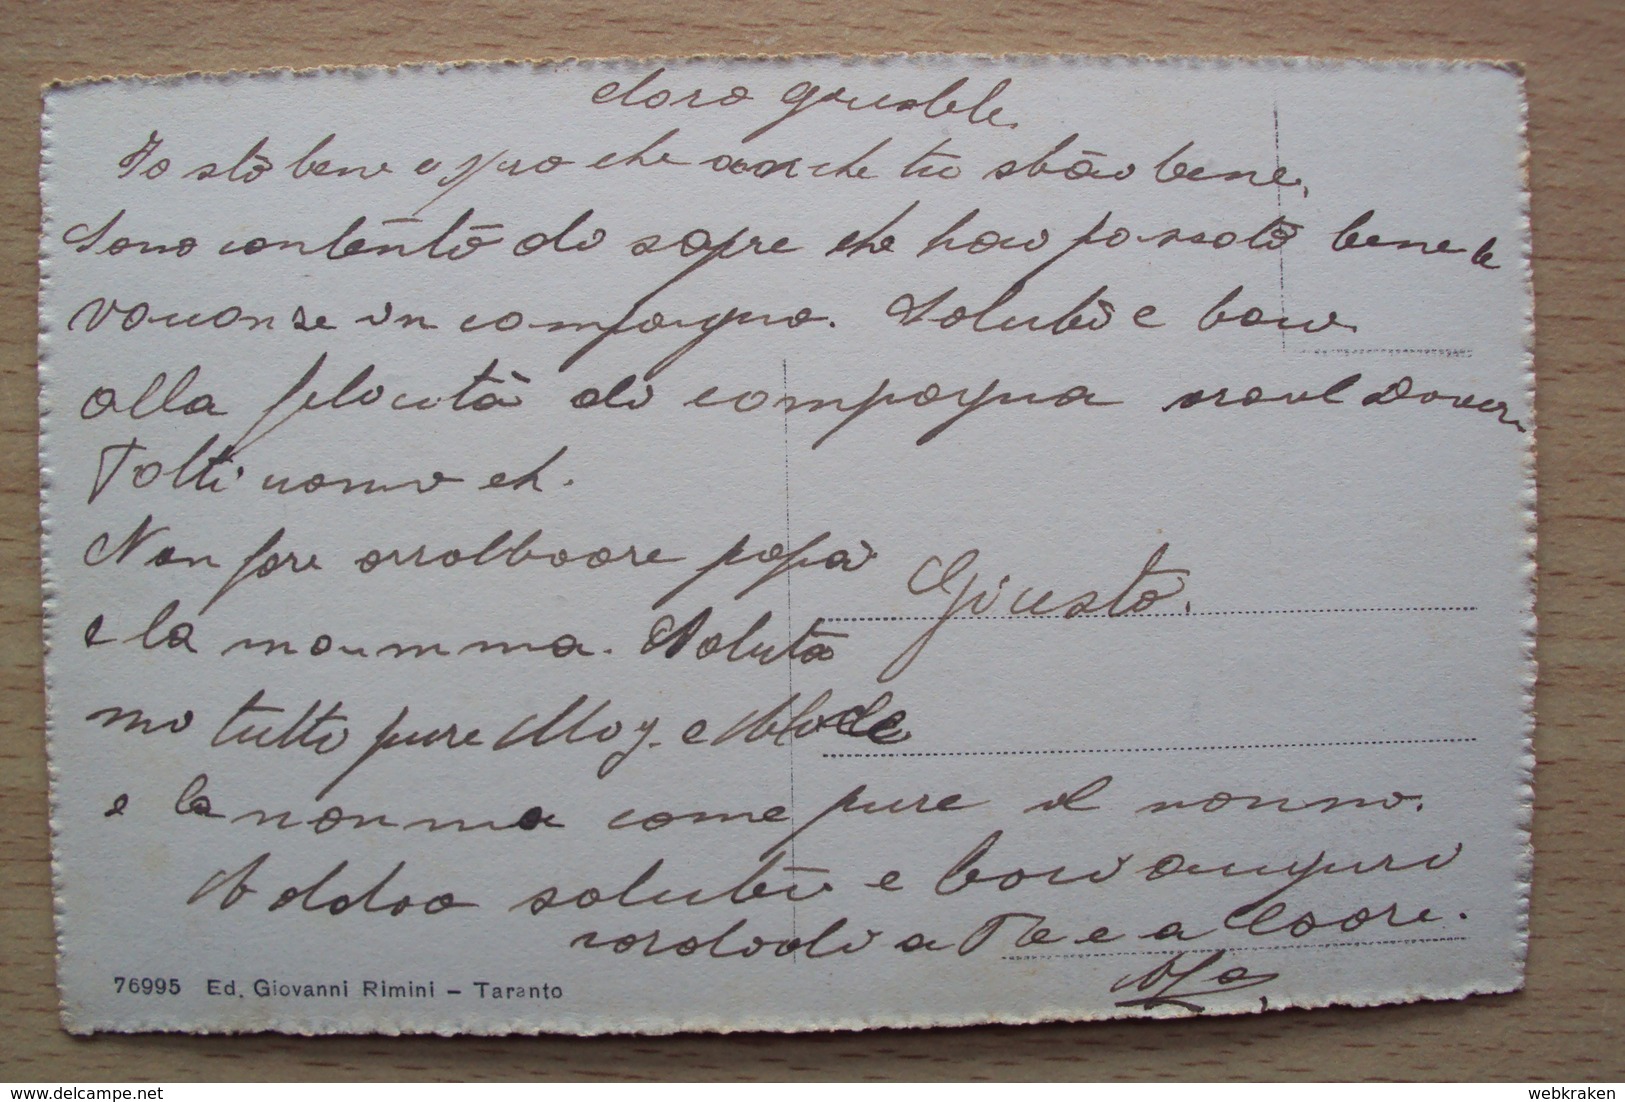 Io stò bene e spero che anche tu stăi bene,
Sono contento di sapre che hai passato bene le
vacanze in campagna. Saluti e baci
alla felicità di campagna
Tolti uomo eh.
Non fare arrabbiare papà
e la mamma. Saluta
mi tutti pure e
e la nonna come pure il nonno.
Addio saluti e baci auguri
cordiali a Te e a
Giusto.
76995 Ed. Giovanni Rimini – Taranto
webkraken